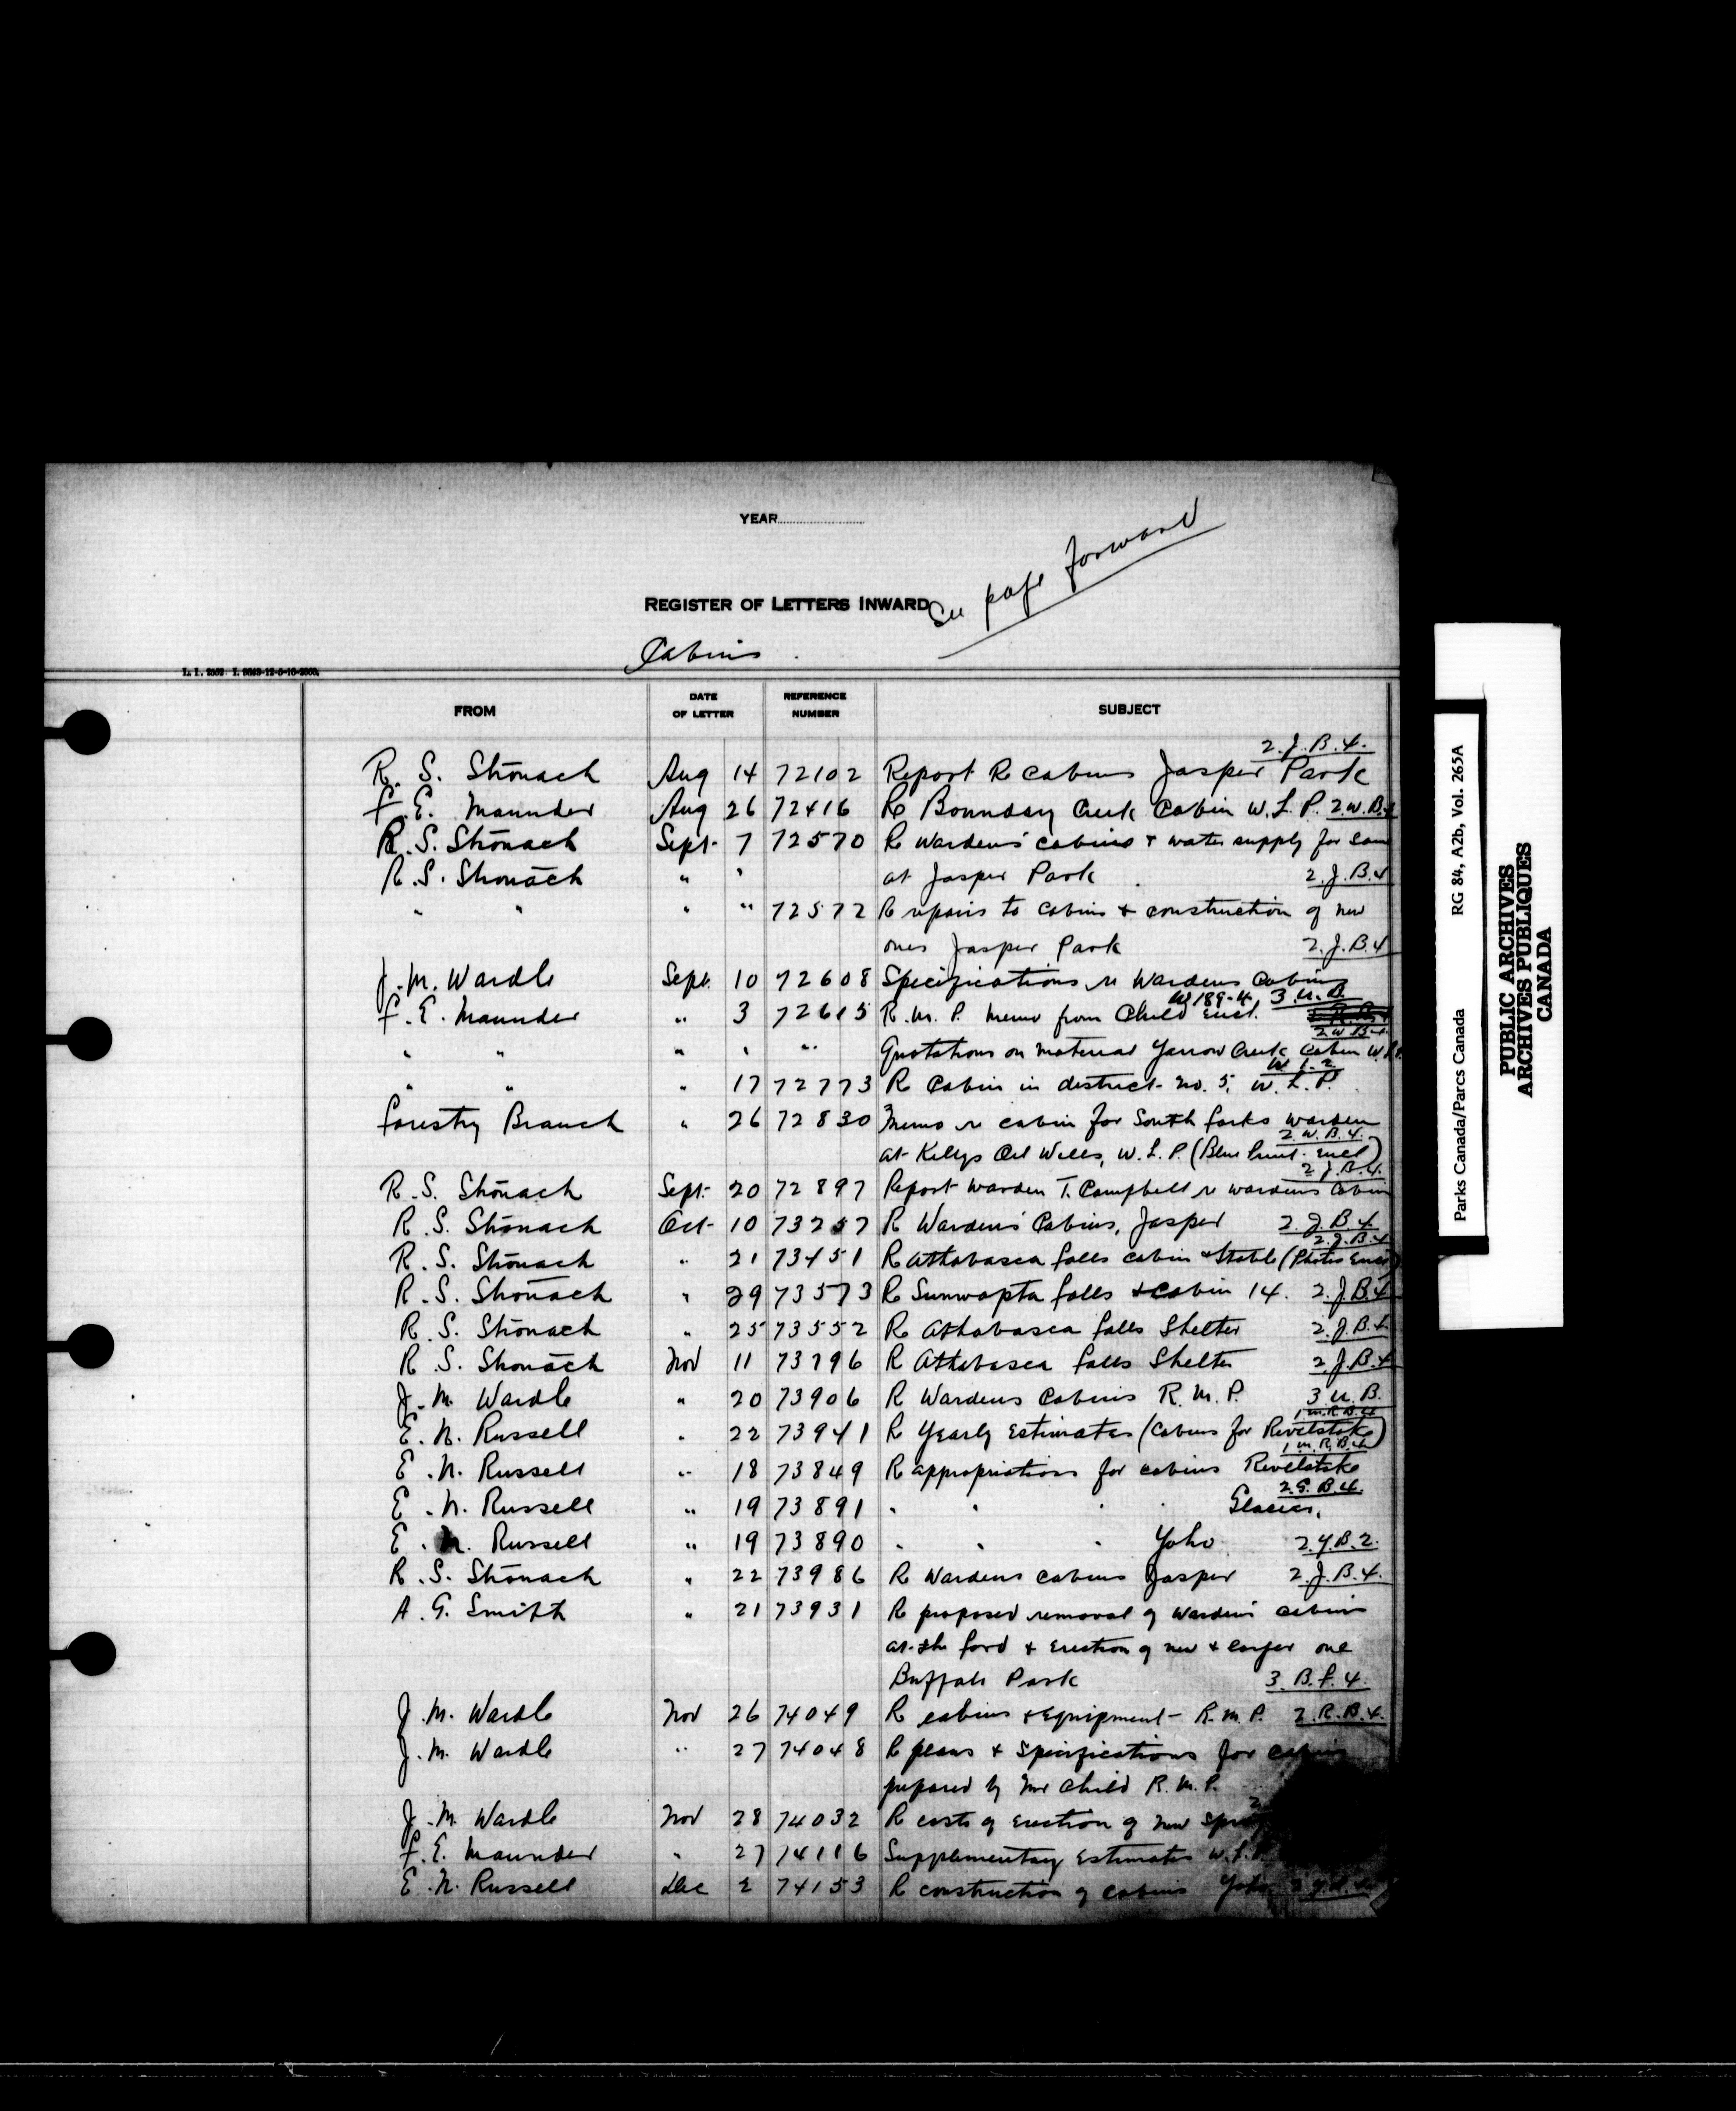 YEAR
See page forward
REGISTER OF LETTERS INWARD
Cabins
FROM DATE OF LETTER REFERENCE NUMBER SUBJECT
2.J.B.4.
R. S. Stronach Aug 14 72102 Report Re Cabins Jasper Park
F. E. Maunder Aug 26 72416 Re Boundary Creek Cabin W.L.P. 2.W.B.4
R. S. Stronach Sept. 7 72570 Re Wardens' cabins & water supply for same
R. S. Stronach " " at Jasper Park 2.J.B.4
" " " " 72572 Re repairs to cabins & construction of new
ones Jasper Park 2.J.B.4
J. M. Wardle Sept. 10 72608 Specifications re Wardens Cabins
W189-4 3.U.B
F. E. Maunder " 3 72615 R.M.P. Memo from Child Encl.
2 W B 4
" " " " " Quotations on material Yarrow Creek Cabin
" " " 17 72773 Re Cabin in district no. 5, W.L.P.
Forestry Branch " 26 72830 Memo re cabin for South forks warden
2.W.B.4.
at Kellys Oil Wells, W.L.P. (Blue Print encl)
2 J.B.4.
R. S. Stronach Sept. 20 72897 Report Warden T. Campbell re wardens cabin
R. S. Stronach Oct 10 73257 Re Wardens' Cabins, Jasper 2.J.B.4
2.J.B.4
R. S. Stronach " 21 73451 Re Athabasca falls cabin & Stable (Photos Encl)
R. S. Stronach " 29 73573 Re Sunwapta falls & Cabin 14. 2.J.B.4
R. S. Stronach " 25 73552 Re Athabasca falls Shelter 2.J.B.4
R. S. Stronach Nov 11 73796 Re Athabasca falls Shelter 2.J.B.4
J. M. Wardle " 20 73906 Re Wardens Cabins R.M.P. 3 U.B.
1 M.R.B.4
E. N. Russell " 22 73941 Re Yearly Estimates (Cabins for Revelstoke)
1 M.R.B.4
E. N. Russell " 18 73849 Re appropriations for cabins Revelstoke
2.G.B.4.
E. N. Russell " 19 73891 " " " " Glacier,
E. N. Russell " 19 73890 " " " Yoho 2.Y.B.2.
R. S. Stronach " 22 73986 Re Wardens cabins Jasper 2.J.B.4.
A. G. Smith " 21 73931 Re proposed removal of Warden's cabin
at the ford & Erection of new & larger one
Buffalo Park 3.B.f.4.
J. M. Wardle Nov 26 74049 Re cabins & Equipment R.M.P. 2.R.B.4.
J. M. Wardle " 27 74048 Re plans & Specifications for cabins
prepared by Mr Child R.M.P.
J. M. Wardle Nov 28 74032 Re costs of Erection of new
F. E. Maunder " 27 74116 Supplementary Estimates
E. N. Russell Dec 2 74153 Re construction of cabins Yoho
Parks Canada/Parcs Canada RG 84, A2b, Vol. 265A
PUBLIC ARCHIVES
ARCHIVES PUBLIQUES
CANADA